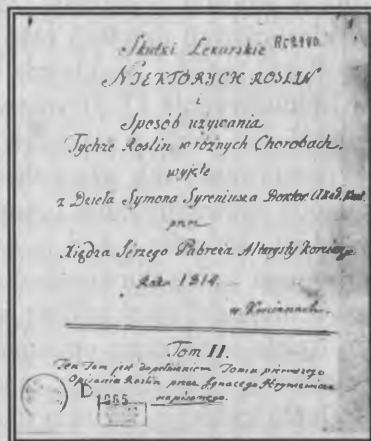 Skutki Lekarskie
NIEKTÓRYCH ROSLIN
i
Sposób używania
Tychże Roslin w różnych Chorobach,
wyjęte
z Dzieła Symona Syreniusza Doktor. Akad.
przez
Xiędza Jerzego Pabreża Altarysty
Roku 1814.
w
Tom II.
Ten Tom jest dopełnieniem Tomu pierwszego
Opisania Roslin przez Ignacego Hrymiewicza
napisanego.